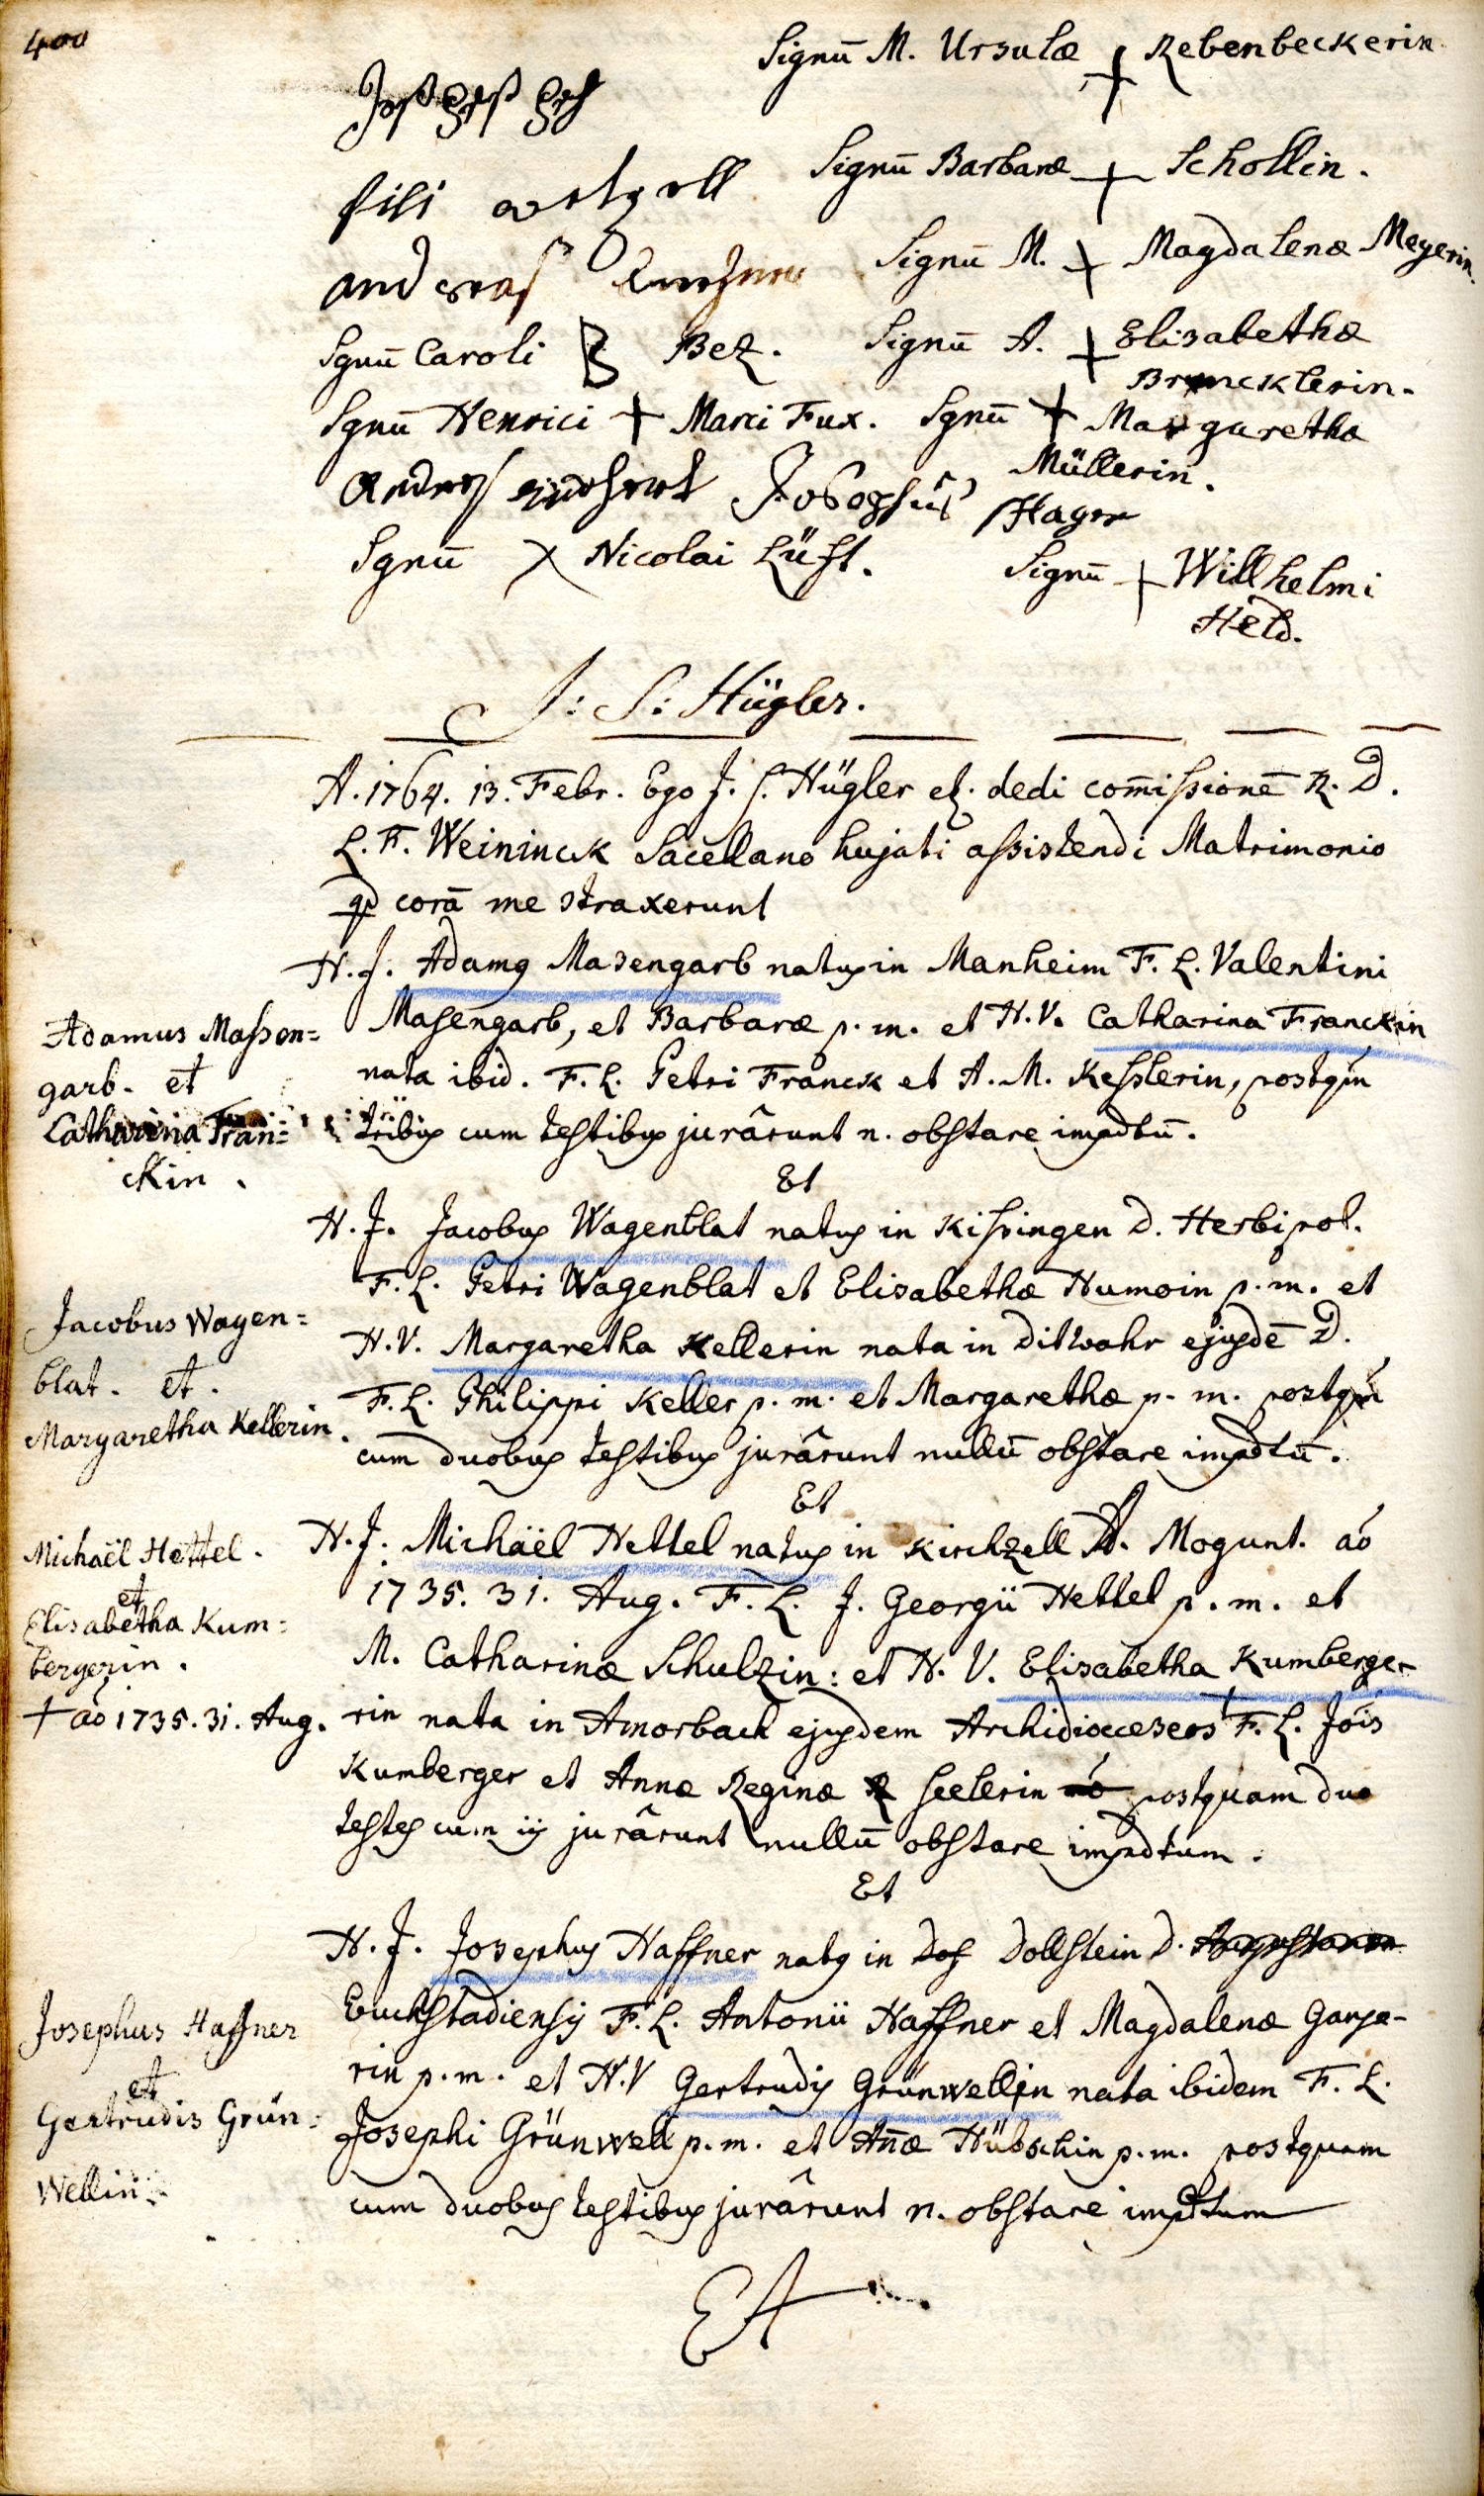 400
Signū M. Ursulæ + Rebenbeckerin
Signū Barbaræ + Schollin.
fili
Signū M. + Magdalenæ Meyerin.
andreas
Sgnū Caroli B Bez. Signū A. + Elisabethæ
Brunklerin.
Sgnū Henrici + Marci Fux. Sgnū + Margaretha
Müllerin.
Josephus Hager
Sgnū X Nicolai Lüft. Signū + Willhelmi
Held.
J: S: Hügler.
A. 1764. 13. Febr. Ego J. S. Hügler etz. dedi com̄issionē R. D.
L. F. Weininck Sacellano hujati assistendi Matrimonio
qd corā me 3traxerunt
H. J. Adamus Masengarb natus in Manheim F. L. Valentini
Masengarb, et Barbaræ p. m. et H. V. Catharina Franckin
nata ibid. F. L. Petri Franck et A. M. Kesslerin, postqm
tribus cum testibus jurârunt n. obstare impdtū.
Adamus Massen=
garb. et
Catharina Fran=
ckin.
Et
H. J. Jacobus Wagenblat natus in Kissingen D. Herbipol.
F. L. Petri Wagenblat et Elisabethæ Humoin p. m. et
H. V. Margaretha Kellerin nata in Ditwahr ejusdē D.
F. L. Philippi Keller p. m. et Margarethæ p. m. postqm
cum duobus testibus jurârunt nullū obstare impdtū.
Jacobus Wagen=
blat. et.
Margaretha Kellerin.
Et
H. J. Michaël Hettel natus in Kirchzell A. Mogunt. aō
1735. 31. Aug. F. L. J. Georgii Hettel p. m. et
M. Catharinæ Schulzin: et H. V. Elisabetha Kumberge-
rin nata in Amorbach ejusdem Archidioeceseos + F. L. Jōis
Kumberger et Annæ Reginæ Seelerin postquam duo
testes cum iis jurârunt nullū obstare impdtum.
Michaël Hettel.
et
Elisabetha Kum=
bergerin.
+ aō 1735. 31. Aug.
Et
H. J. Josephus Haffner natus in Dos Dollstein D.
Euchstadiensis F. L. Antonii Haffner et Magdalenæ
rin p. m. et H. V Gertrudis Grünwellin nata ibidem F. L.
Josephi Grünwell p. m. et An̄æ Hübschin p. m. postquam
cum duobus testibus jurârunt n. obstare impdtum
Josephus Haffner
et
Gertrudis Grün=
wellin.
Et